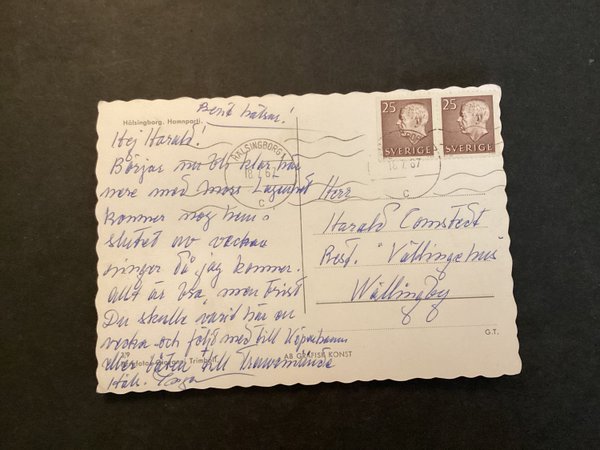 Hälsingborg. Hamnparti.
Bert hälsar!
Hej Harald!
Börjar nu bli klar här
nere med mors
kommer nog hem i
slutet av veckan
ringer då jag kommer.
Allt är bra, men trist
Du skulle varit här en
vecka och följt med till Köpenhamn
eller båten till Travemünde
Häls.
Flygfoto: Trimbolt
AB GRAFISK KONST
G.T.
HÄLSINGBORG 1
18.7.67
C
25 25
SVERIGE SVERIGE
18.7.67
C
Herr
Harald Comstedt
Rest. "Vällingehus"
Vällingby